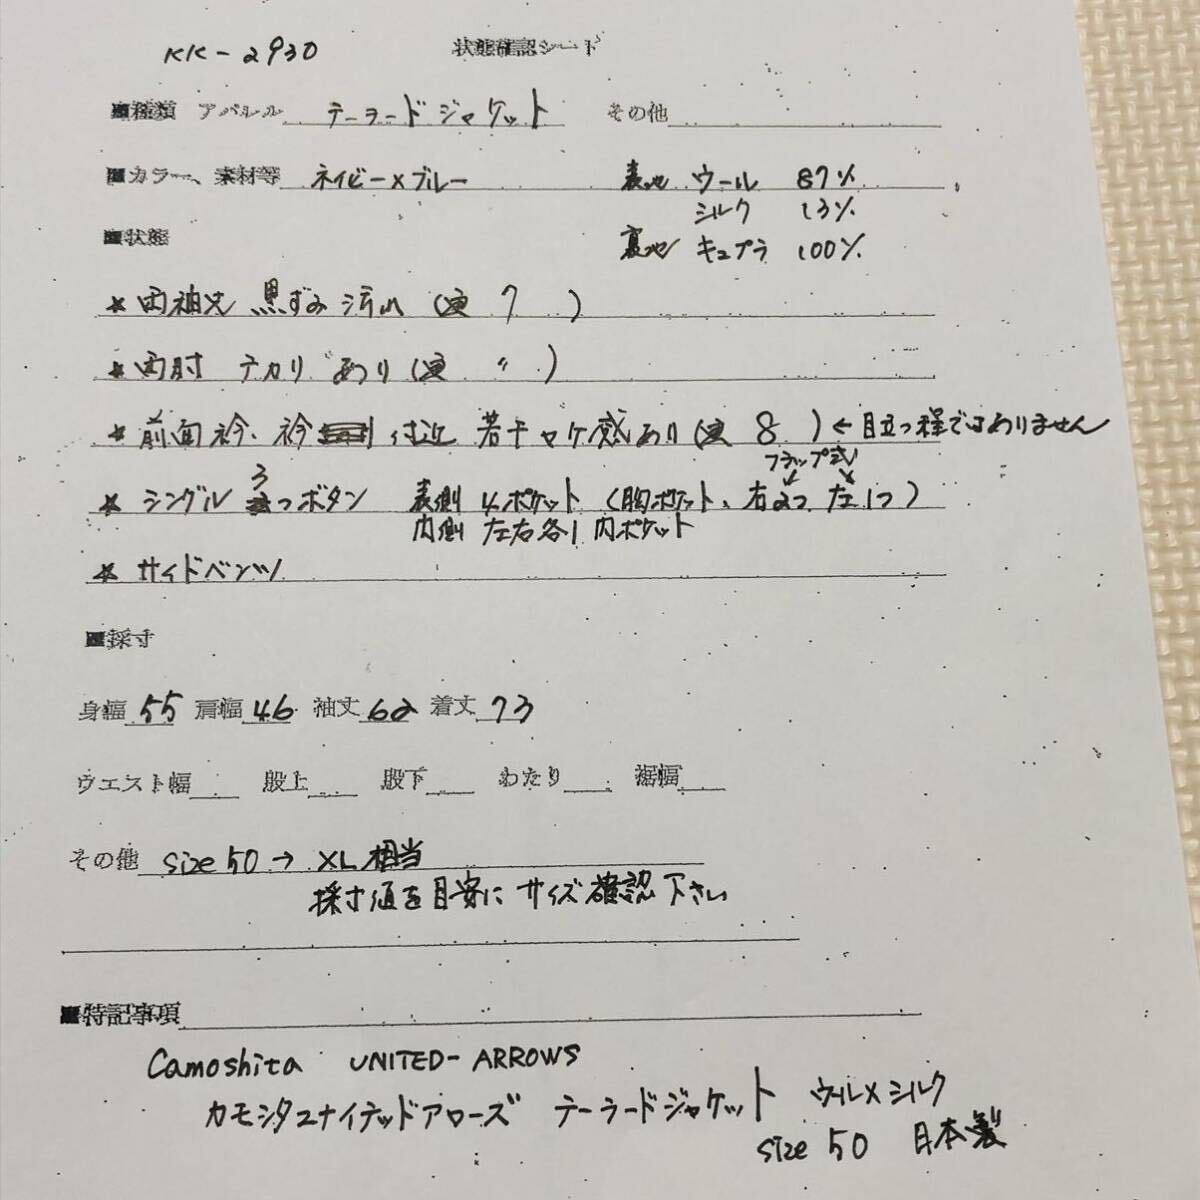 KK-2930 状態確認シート
■種類 アパレル テーラードジャケット その他
■カラー、素材等 ネイビー×ブルー 表地 ウール 87%
シルク 13%
■状態 裏地 キュプラ 100%
★両袖先 黒ずみ汚れ (写 7 )
★両肘 テカリ あり (写 〃 )
★前面衿、衿 付近 若干ロケ感あり (写 8 ) ← 目立つ程ではありません
フラップ式
★シングル 3つボタン 表側 4ポケット (胸ポケット、右2つ 左1つ)
内側 左右各1 内ポケット
★サイドベンツ
■採寸
身幅 55 肩幅 46 袖丈 62 着丈 73
ウエスト幅 股上 股下 わたり 裾幅
その他 size 50 → XL 相当
採寸値を目安に サイズ確認下さい
■特記事項
Camoshita UNITED-ARROWS
カモシタユナイテッドアローズ テーラードジャケット ウール×シルク
size 50 日本製